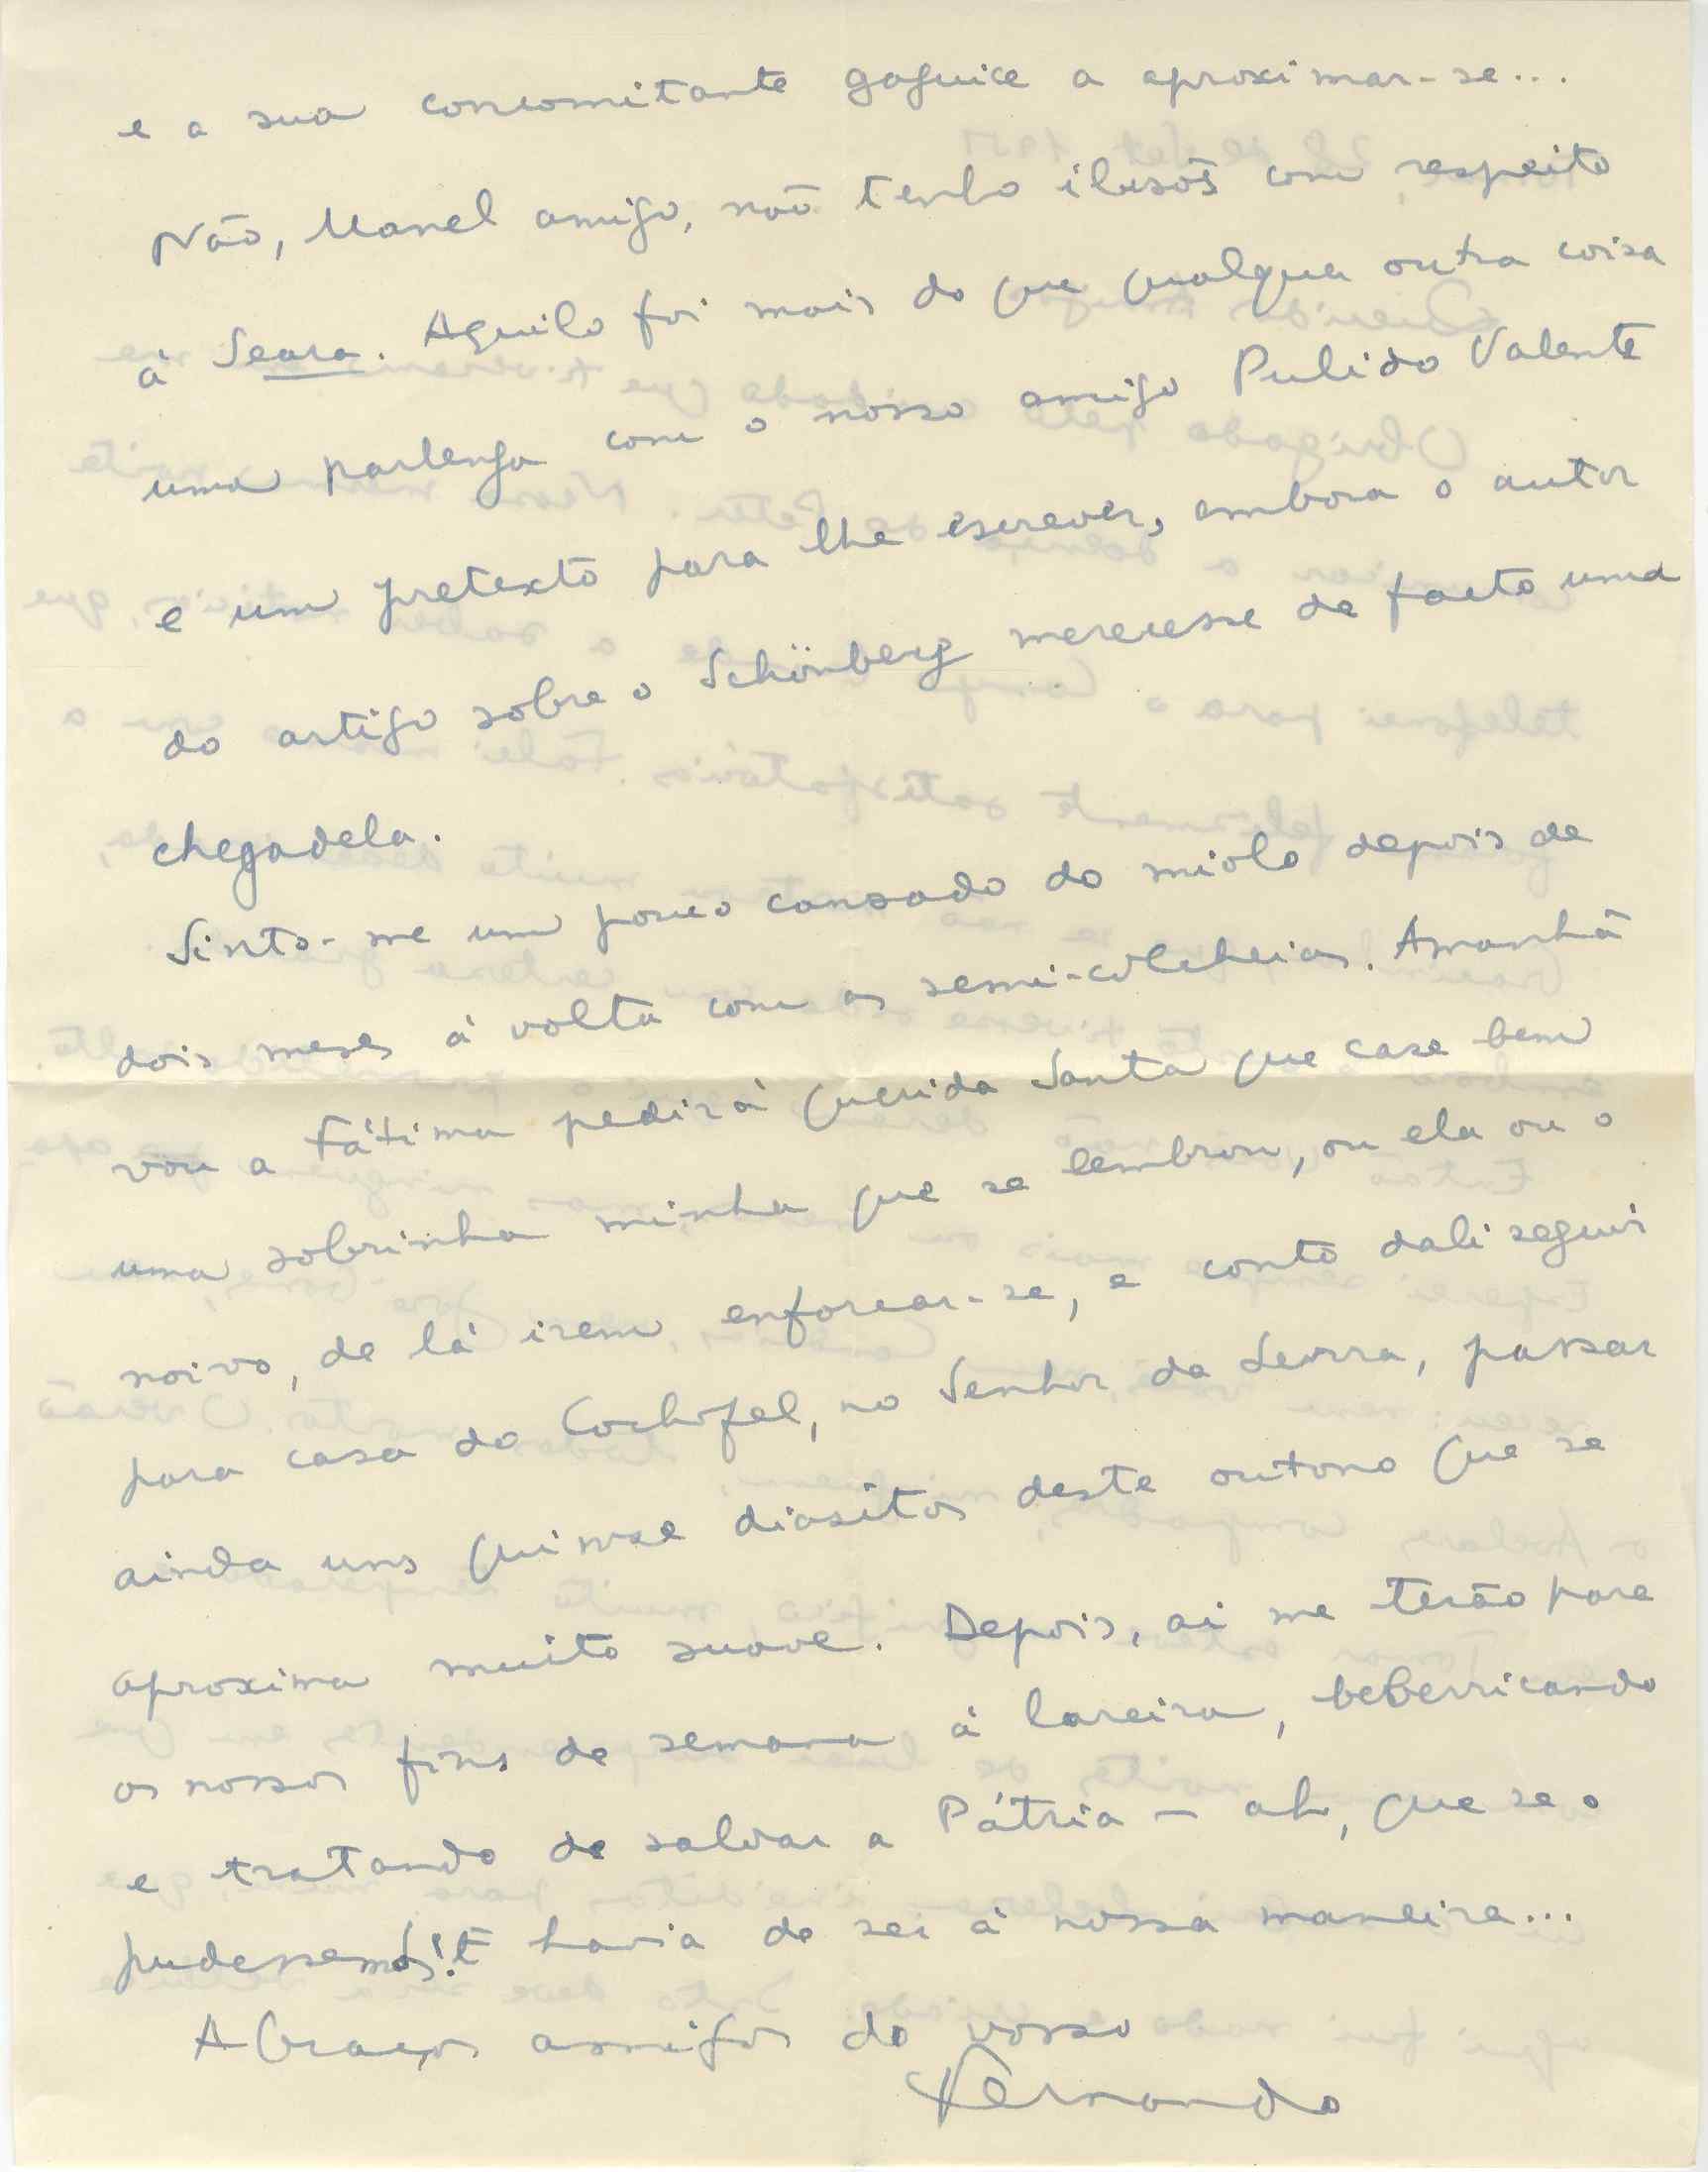 e a sua concomitante gaguice a aproximar-se...
Não, Manel amigo, não tenho ilusões com respeito
à Seara. Aquilo foi mais do que qualquer outra coisa
uma parlenga com o nosso amigo Pulido Valente
e um pretexto para lhe escrever, embora o autor
do artigo sobre o Schönberg merecesse de facto uma
chegadela.
Sinto-me um pouco cansado do miolo depois de
dois meses à volta com as semi-colcheias. Amanhã
vou a Fátima pedir à querida Santa que case bem
uma sobrinha minha que se lembrou, ou ela ou o
noivo, de lá irem enforcar-se, e conto dali seguir
para casa do Cochofel, no Senhor da Serra, passar
ainda uns quinze diasitos deste outono que se
aproxima muito suave. Depois, aí me terão para
os nossos fins de semana à lareira, beberricando
e tratando de salvar a Pátria — ah, que se o
pudessemos! E havia de ser à nossa maneira...
Abraços amigos do vosso
Fernando